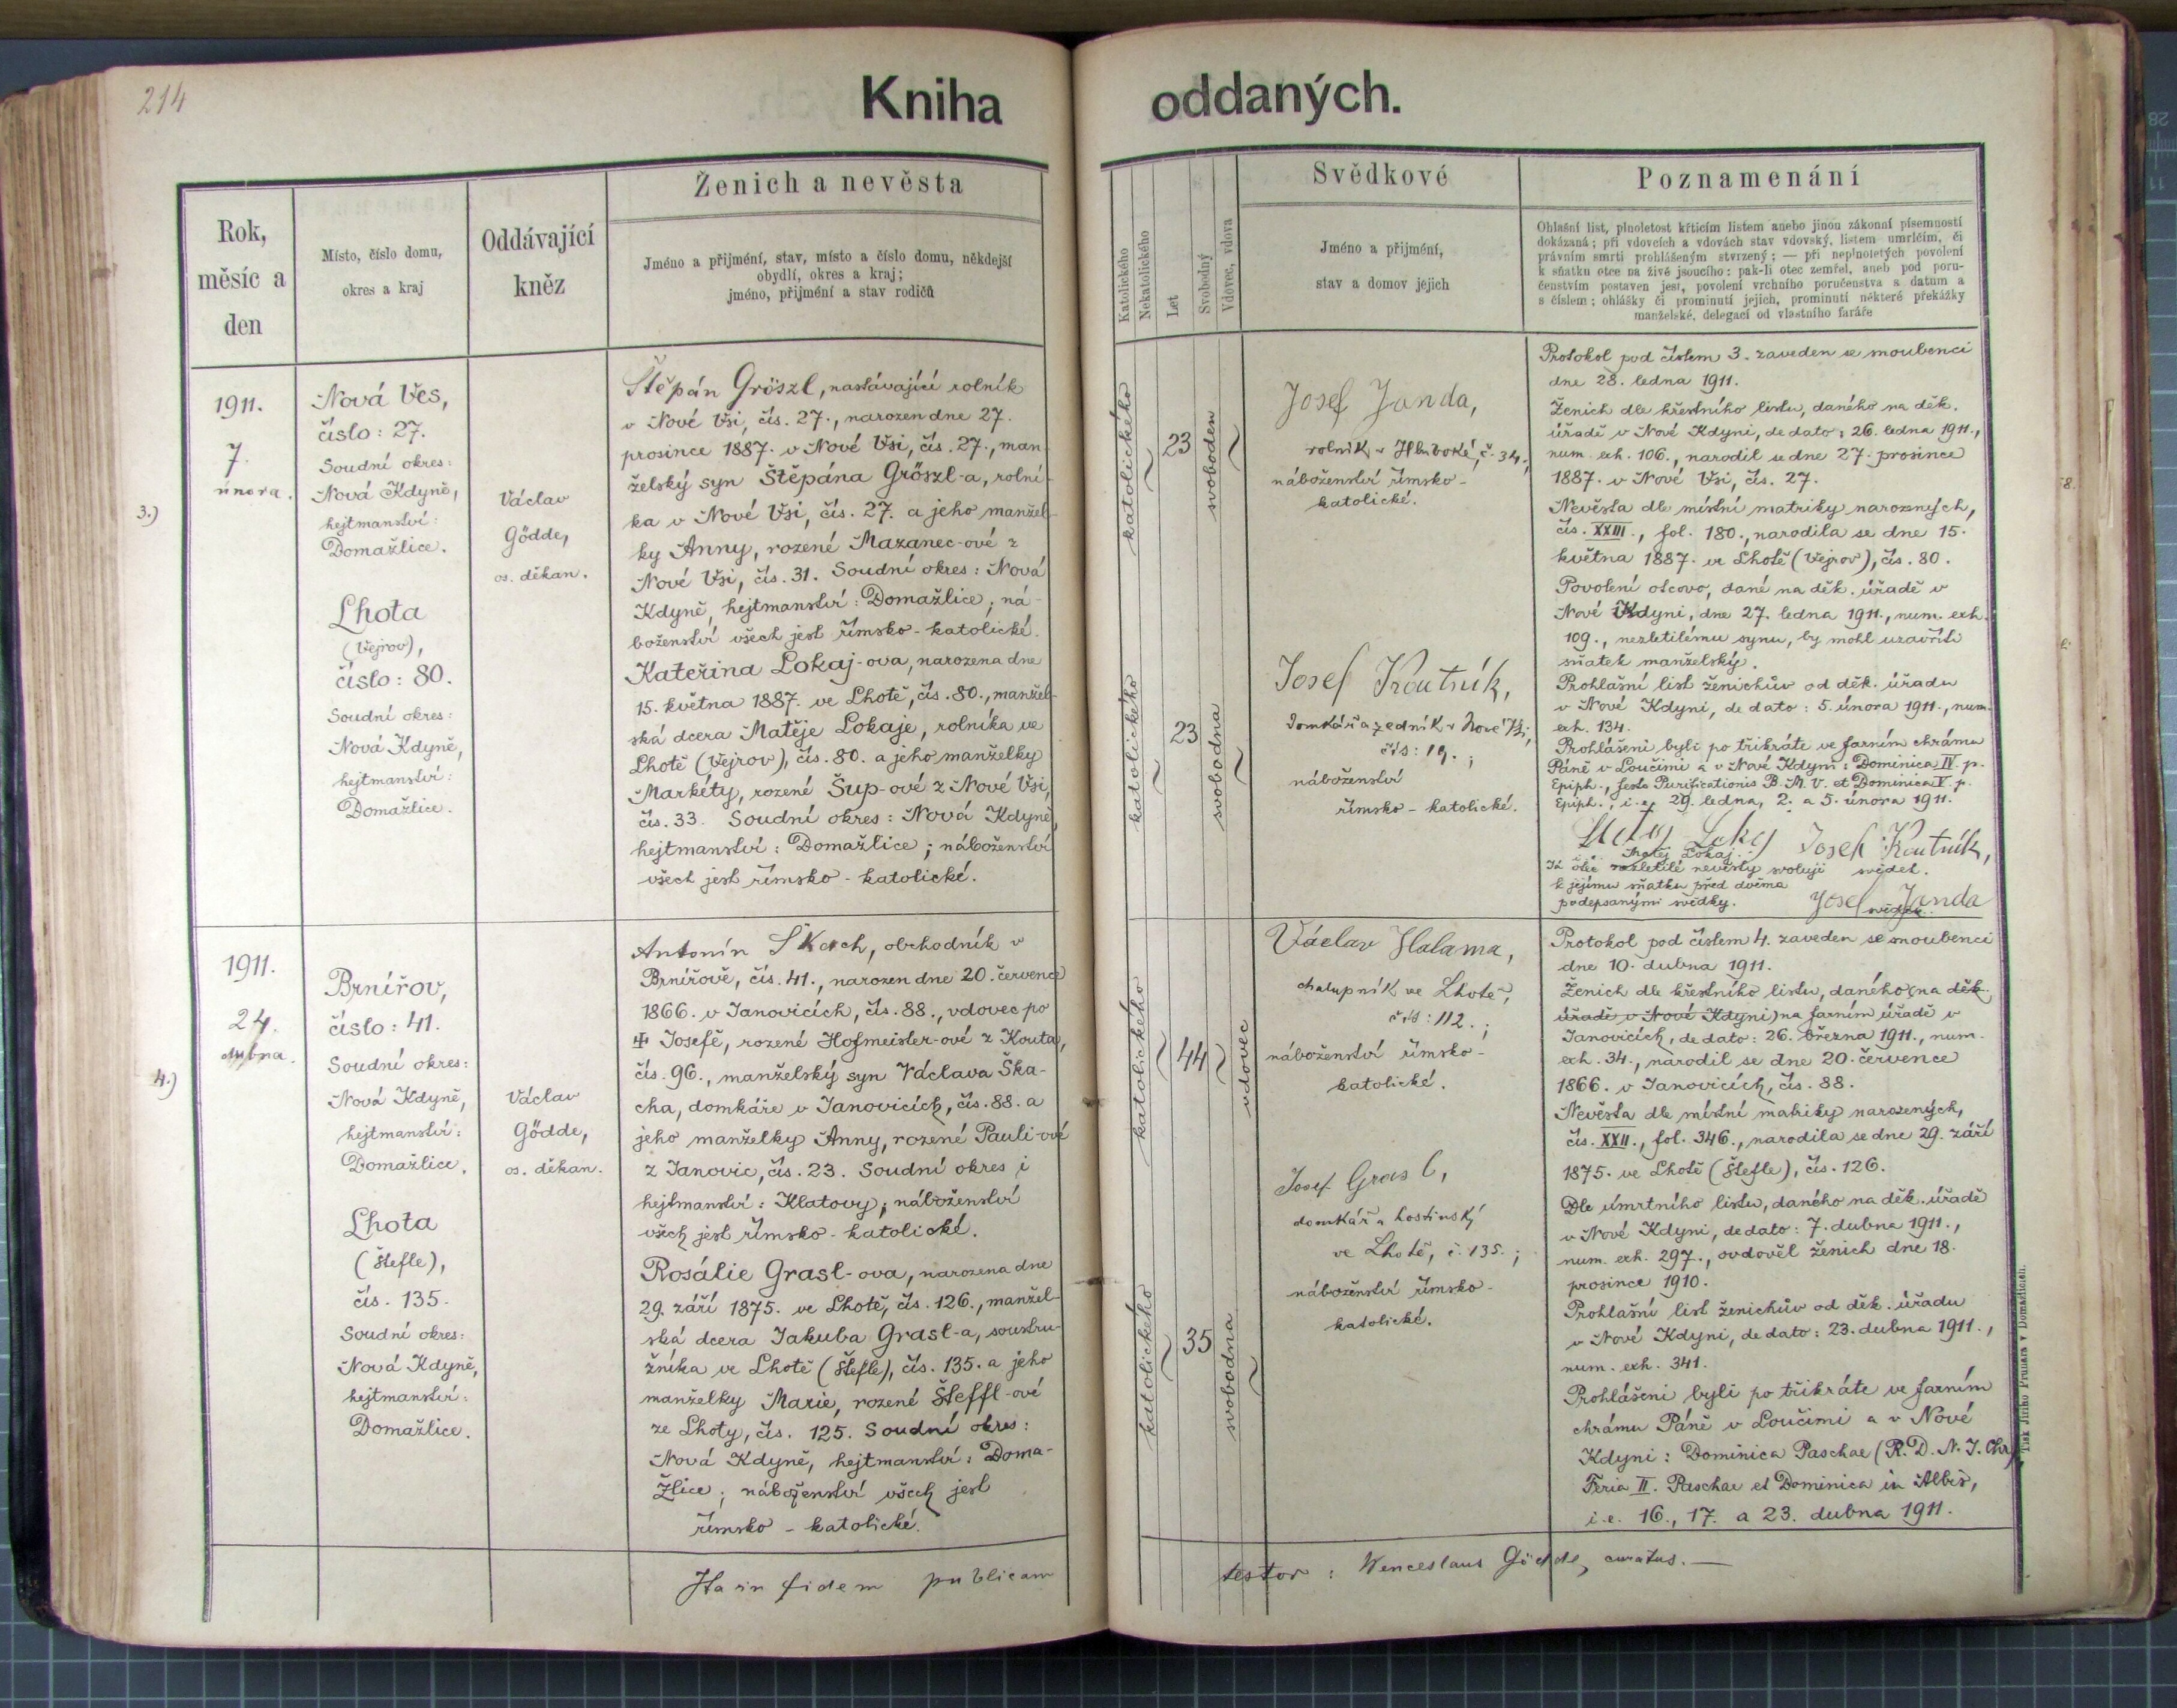 214
Kniha oddaných.
Rok,
měsíc a
den
Místo, číslo domu,
okres a kraj
Oddávající
kněz
Ženich a nevěsta
Jméno a přijmění, stav, místo a číslo domu, někdejší
obydlí, okres a kraj;
jméno, přijmění a stav rodičů
Katolického
Nekatolického
Let
Svobodný
Vdovec, vdova
Svědkové
Jméno a přijmění,
stav a domov jejich
Poznamenání
Ohlašní list, plnoletost křticím listem anebo jinou zákonní písemností
dokázaná; při vdovcích a vdovách stav vdovský, listem umrlčím, či
právním smrti prohlášeným stvrzený; — při neplnoletých povolení
k sňatku otce na živě jsoucího: pak-li otec zemřel, aneb pod poru-
čenstvím postaven jest, povolení vrchního poručenstva s datum a
s číslem; ohlášky či prominutí jejich, prominutí některé překážky
manželské, delegací od vlastního faráře
3.)
1911.
7.
února.
Nová Ves,
číslo: 27.
Soudní okres:
Nová Kdyně,
hejtmanství:
Domažlice.
Lhota
(Vejrov),
číslo: 80.
Soudní okres:
Nová Kdyně,
hejtmanství:
Domažlice.
Václav
Gödde,
os. děkan.
Štěpán Gröszl, nastávající rolník
v Nové Vsi, čís. 27., narozen dne 27.
prosince 1887. v Nové Vsi, čís. 27., man-
želský syn Štěpána Gröszl-a, rolní-
ka v Nové Vsi, čís. 27. a jeho manžel-
ky Anny, rozené Mazanec-ové z
Nové Vsi, čís. 31. Soudní okres: Nová
Kdyně, hejtmanství: Domažlice; ná-
boženství všech jest římsko-katolické.
Kateřina Lokaj-ova, narozena dne
15. května 1887. ve Lhotě, čís. 80., manžel-
ská dcera Matěje Lokaje, rolníka ve
Lhotě (Vejrov), čís. 80. a jeho manželky
Markéty, rozené Šup-ové z Nové Vsi,
čís. 33. Soudní okres: Nová Kdyně,
hejtmanství: Domažlice; náboženství
všech jest římsko-katolické.
katolického
23
svoboden
katolického
23
svobodna
Josef Janda,
rolník v Hluboké, č. 34.,
náboženství římsko-
katolické.
Josef Koutník,
domkář a zedník v Nové Vsi,
čís: 19.;
náboženství
římsko-katolické.
Protokol pod číslem 3. zaveden se snoubenci
dne 28. ledna 1911.
Ženich dle křestního listu, daného na děk.
úřadě v Nové Kdyni, de dato: 26. ledna 1911.,
num. exh. 106., narodil se dne 27. prosince
1887. v Nové Vsi, čís. 27.
Nevěsta dle místní matriky narozených,
čís. XXIII., fol. 180., narodila se dne 15.
května 1887. ve Lhotě (Vejrov), čís. 80.
Povolení otcovo, dané na děk. úřadě v
Nové Kdyni, dne 27. ledna 1911., num. exh.
109., nezletilému synu, by mohl uzavříti
sňatek manželský.
Prohlašní list ženichův od děk. úřadu
v Nové Kdyni, de dato: 5. února 1911., num.
exh. 134.
Prohlášeni byli po třikráte ve farním chrámu
Páně v Loučimi a v Nové Kdyni: Dominica IV. p.
Epiph., festo Purificationis B. M. V. et Dominica V. p.
Epiph., i. e. 29. ledna, 2. a 5. února 1911.
Matěj Lokaj.
otec nezletilé nevěsty svoluji
k jejímu sňatku před dvěma
podepsanými svědky.
Josef Koutník,
svědek.
Josef Janda
svědek.
4.)
1911.
24.
dubna.
Brnířov,
číslo: 41.
Soudní okres:
Nová Kdyně,
hejtmanství:
Domažlice.
Lhota
(Štefle),
čís. 135.
Soudní okres:
Nová Kdyně,
hejtmanství:
Domažlice.
Václav
Gödde,
os. děkan.
Antonín Škach, obchodník v
Brnířově, čís. 41., narozen dne 20. července
1866. v Janovicích, čís. 88., vdovec po
✠ Josefě, rozené Hofmeister-ové z Kouta,
čís. 96., manželský syn Václava Ška-
cha, domkáře v Janovicích, čís. 88. a
jeho manželky Anny, rozené Pauli-ové
z Janovic, čís. 23. Soudní okres i
hejtmanství: Klatovy; náboženství
všech jest římsko-katolické.
Rosálie Grasl-ova, narozena dne
29. září 1875. ve Lhotě, čís. 126., manžel-
ská dcera Jakuba Grasl-a, soustru-
žníka ve Lhotě (Štefle), čís. 135. a jeho
manželky Marie, rozené Šteffl-ové
ze Lhoty, čís. 125. Soudní okres:
Nová Kdyně, hejtmanství: Doma-
žlice; náboženství všech jest
římsko-katolické.
katolického
44
vdovec
katolického
35
svobodna
Václav Halama,
chalupník ve Lhotě,
čís: 112.;
náboženství římsko-
katolické.
Josef Grasl,
domkář a hostinský
ve Lhotě, č. 135.;
náboženství římsko-
katolické.
Protokol pod číslem 4. zaveden se snoubenci
dne 10. dubna 1911.
Ženich dle křestního listu, daného (na děk.
úřadě v Nové Kdyni) na farním úřadě v
Janovicích, de dato: 26. března 1911., num.
exh. 34., narodil se dne 20. července
1866. v Janovicích, čís. 88.
Nevěsta dle místní matriky narozených,
čís. XXII., fol. 346., narodila se dne 29. září
1875. ve Lhotě (Štefle), čís. 126.
Dle úmrtního listu, daného na děk. úřadě
v Nové Kdyni, de dato: 7. dubna 1911.,
num. exh. 297., ovdověl ženich dne 18.
prosince 1910.
Prohlašní list ženichův od děk. úřadu
v Nové Kdyni, de dato: 23. dubna 1911.,
num. exh. 341.
Prohlášeni byli po třikráte ve farním
chrámu Páně v Loučimi a v Nové
Kdyni: Dominica Paschae (R. D. N. J. Chr.)
Feria II. Paschae et Dominica in Albis,
i. e. 16., 17. a 23. dubna 1911.
Ita in fidem publicam testor: Wenceslaus Gödde, curatus. —
Tisk Jiřího Prunara v Domažlicích.